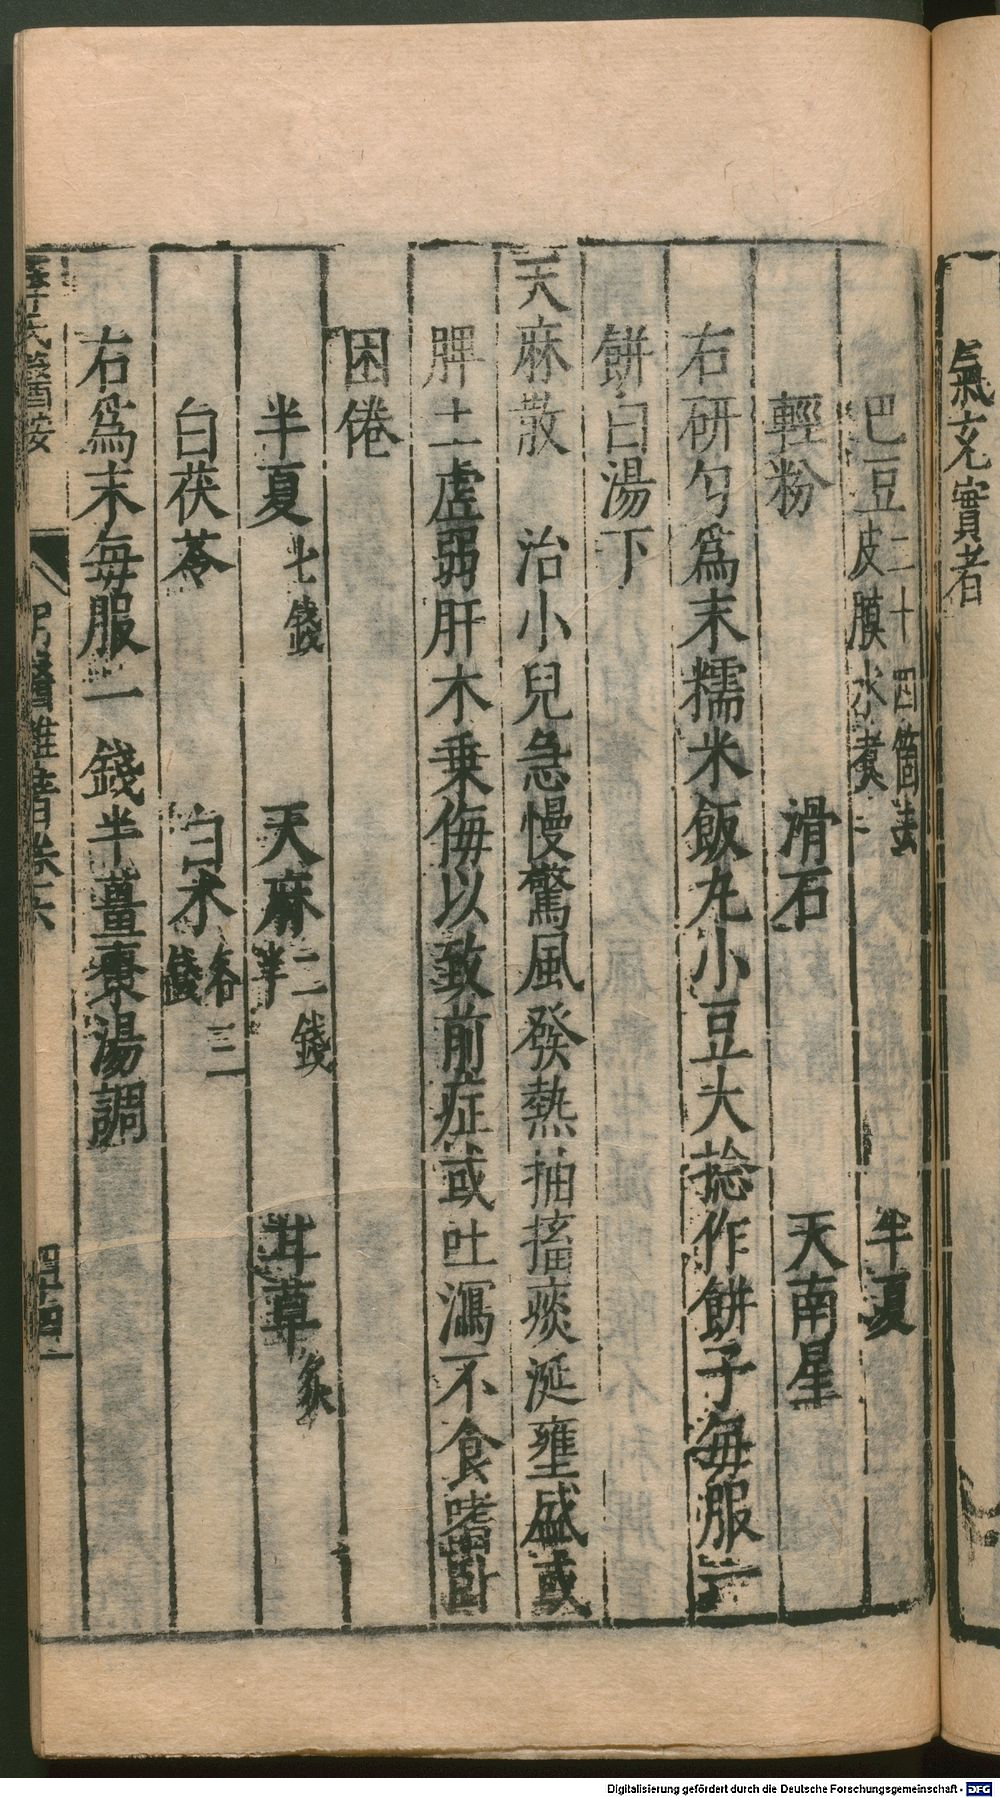 氣充實者
巴豆二十四箇去皮膜水煮 半夏
輕粉 滑石 天南星
右研勻爲末糯米飯丸小豆大捻作餅子每服二
餅白湯下
天麻散 治小兒急慢驚風發熱抽搐痰涎壅盛或
脾土虛弱肝木乗侮以致前症或吐瀉不食嗜卧
困倦
半夏七錢 天麻二錢半 甘草炙
白茯苓 白朮各三錢
右爲末每服一錢半薑棗湯調
醫按
卷六
四十四
Digitalisierung gefördert durch die Deutsche Forschungsgemeinschaft - DFG